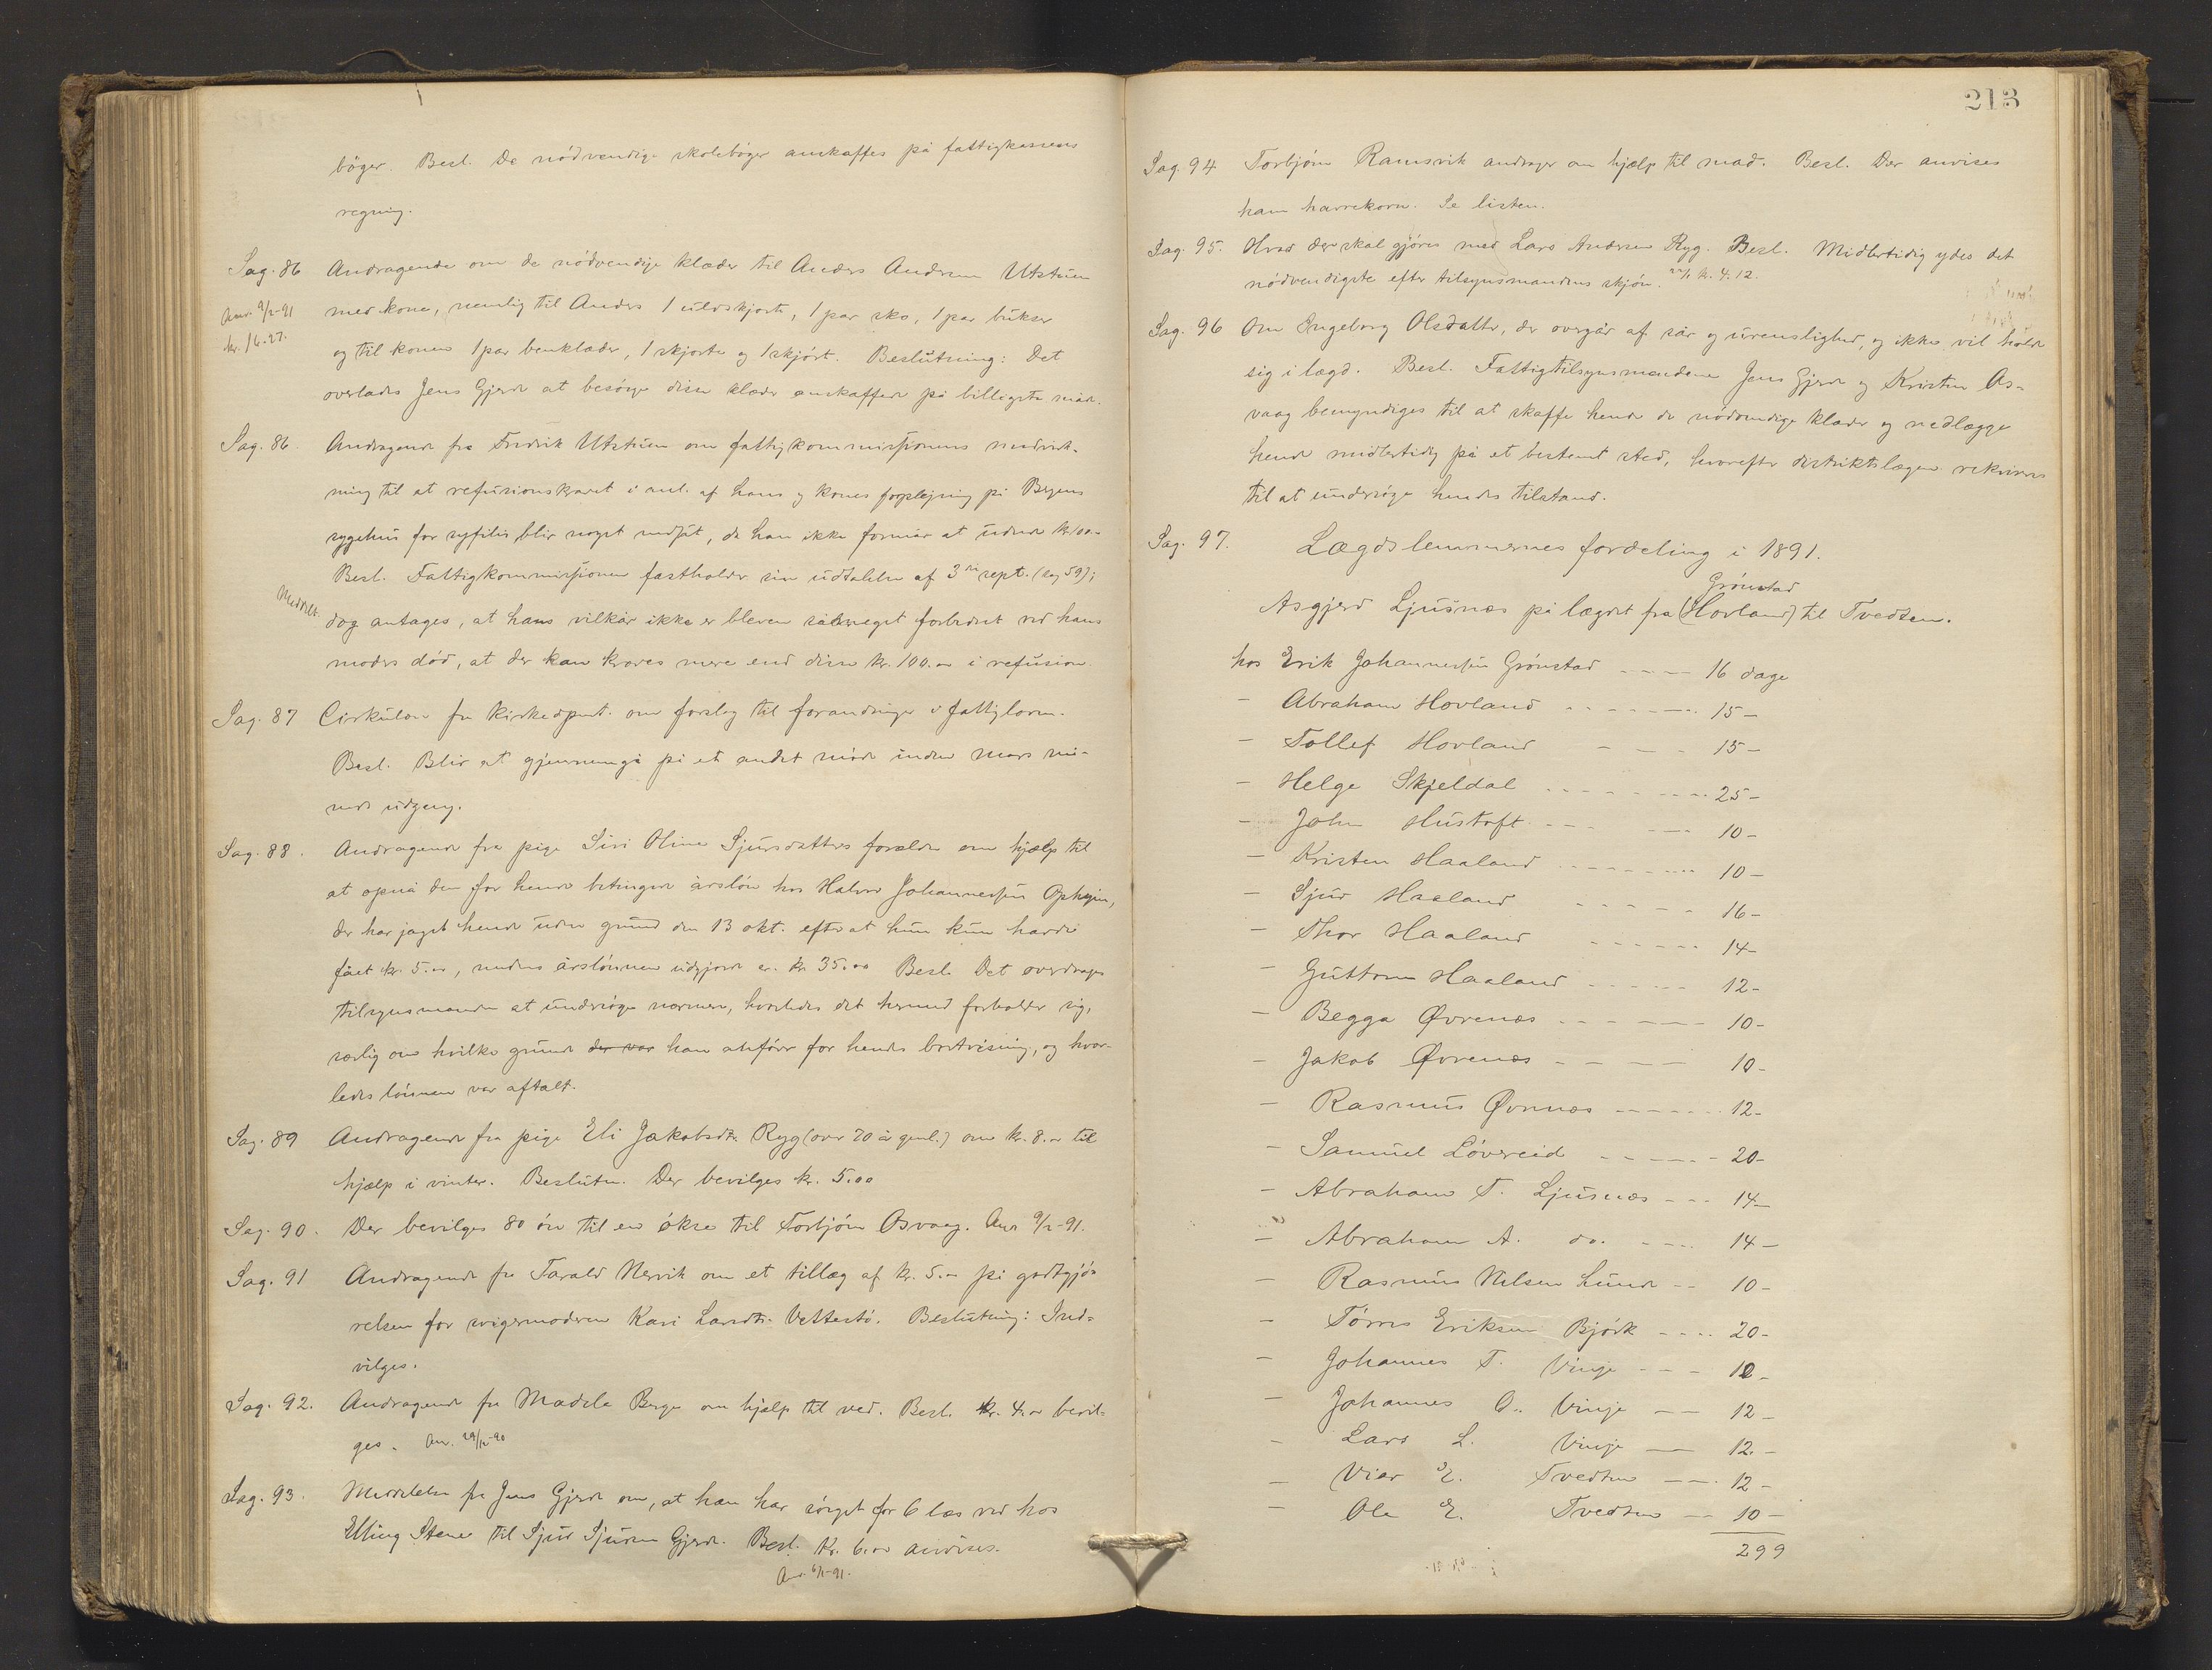 bøger. Besl. De nødvendige skolebøger anskaffes på fattigkassens
regning.
Sag. 86 Andragende om de nødvendige klæder til Anders Andersen Utstuen
Anv. 9/2-91 med kone, nemlig til Anders 1 uldskjorte, 1 par sko, 1 par bukser
kr. 16.27. og til konen 1 par benklæder, 1 skjorte og 1 skjørt. Beslutning: Det
overlades Jens Gjerde at besørge disse klæder anskaffede på billigste måde.
Sag. 86 Andragende fra Fredrik Utstuen om fattigkommissionens medvirk-
ning til at refusionskravet i anl. af hans og kones forplejning på Bergens
sygehus for syfilis blir noget nedsat, da han ikke formår at udrede kr. 100.-
Besl. Fattigkommissionen fastholder sin udtalelse af 3die sept. (sag 59);
Meddelt. dog antages, at hans vilkår ikke er bleven såmeget forbedret ved hans
moders død, at der kan kræves mere end disse kr. 100.00 i refusion.
Sag. 87 Cirkulære fra Kirkedpmt. om forslag til forandringer i fattigloven.
Besl. Blir at gjennemgå på et andet møde inden mars må-
neds udgang.
Sag. 88. Andragende fra pige Siri Oline Sjursdatters forældre om hjælp til
at opnå den for hende betingede årsløn hos Halvor Johannessen Opheim,
der har jaget hende uden grund den 13 okt. efter at hun kun havde
fået kr. 5.00, medens årslønnen udgjorde er. kr. 35.00 Besl. Det overdrages
tilsynsmanden at undersøge nærmere, hvorledes det hermed forholder sig,
særlig om hvilke grunde der var han anfører for hendes bortvisning, og hvor-
ledes lønnen var aftalt.
Sag. 89 Andragende fra pige Eli Jakobsdtr. Ryg (over 70 år gml.) om kr. 8.00 til
hjælp i vinter. Beslutn. Der bevilges kr. 5.00
Sag. 90. Der bevilges 80 øre til en økse til Torbjørn Osvaag. Anv. 9/2-91.
Sag. 91 Andragende fra Tarald Nervik om et tillæg af kr. 5.00 på godtgjø-
relsen for svigermoderen Kari Larsdtr. Vettestø. Beslutning: Ind-
vilges.
Sag. 92. Andragende fra Madela Berge om hjælp til ved. Besl. kr. 4.00 bevil-
ges. Anv. 29/12-90
Sag. 93. Meddelelse fra Jens Gjerde om, at han har sørget for 6 læs ved hos
Elling Stene til Sjur Sjursen Gjerde. Besl. Kr. 6.00 anvises.
Anv. 6/1-91.
213
Sag. 94 Torbjørn Ramsvik andrager om hjælp til mad. Besl. Der anvises
ham havrekorn. Se listen.
Sag. 95. Hvad der skal gjøres med Lars Andersen Ryg. Besl. Midlertidig ydes det
nødvendigste efter tilsynsmandens skjøn. kr. 4.12.
Sag. 96 Om Ingeborg Olsdatter, der overgår af sår og urenslighed, og ikke vil holde
sig i lægd. Besl. Fattigtilsynsmændene Jens Gjerde og Kristen Os-
vaag bemyndiges til at skaffe hende de nødvendige klæder og nedlægge
hende midlertidig på et bestemt sted, hvorefter distriktslægen rekvireres
til at undersøge hendes tilstand.
Sag. 97. Lægdslemmernes fordeling i 1891.
Grønstad
Asgjerd Ljusnæs på lægdet fra (Hovland) til Tvedten.
hos Erik Johannessen Grønstad ---- 16 dage
- Abraham Hovland ------- 15 -
- Tollef Hovland - - - 15 -
- Helge Skjeldal ------- 25 -
- John Hustoft ----- 10 -
- Kristen Haaland ------- 10 -
- Sjur Haaland ----- 16 -
- Thor Haaland ------ 14 -
- Guttorm Haaland ----- 12 -
- Begga Øvrenæs ------ 10 -
- Jakob Øvrenæs ----- 10 -
- Rasmus Øvrenæs ------ 12 -
- Samuel Løvereid ----- 20 -
- Abraham T. Ljusnæs --- 14 -
- Abraham A. do. ---- 14 -
- Rasmus Nilsen Lunde -- 10 -
- Tørres Eriksen Bjørk ---- 20 -
- Johannes T. Vinje --- 12 -
- Johannes O. Vinje -- 12 -
- Lars L. Vinje -- 12 -
- Viar E. Tvedten -- 12 -
- Ole E. Tvedten -- 10 -
299